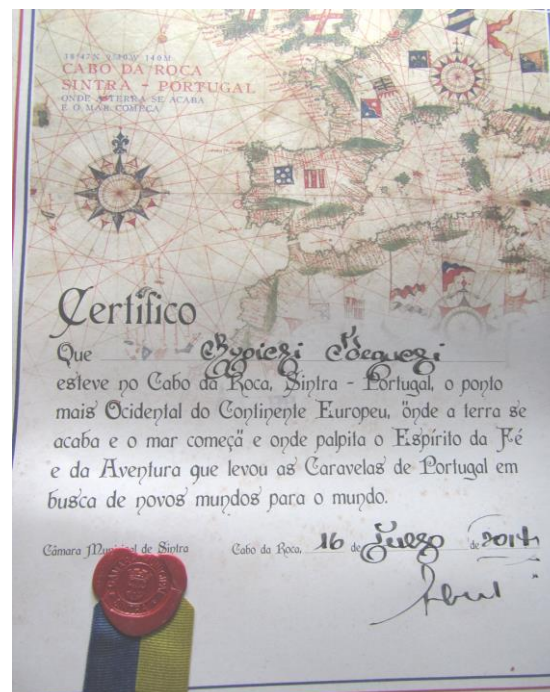 CABO DA ROCA
SINTRA - PORTUGAL
ONDE A TERRA SE ACABA
E O MAR COMEÇA
Certifico
Que
esteve no Cabo da Roca, Sintra - Portugal, o ponto
mais Ocidental do Continente Europeu, "onde a terra se
acaba e o mar começa" e onde palpita o Espírito da Fé
e da Aventura que levou as Caravelas de Portugal em
busca de novos mundos para o mundo.
Câmara Municipal de Sintra Cabo da Roca, 16 de Julho de 2014